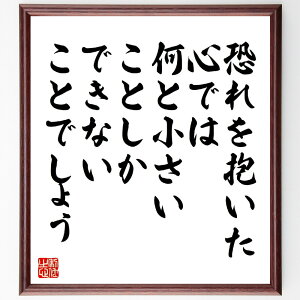 恐れを抱いた
心では
何と小さい
ことしか
できない
ことでしょう